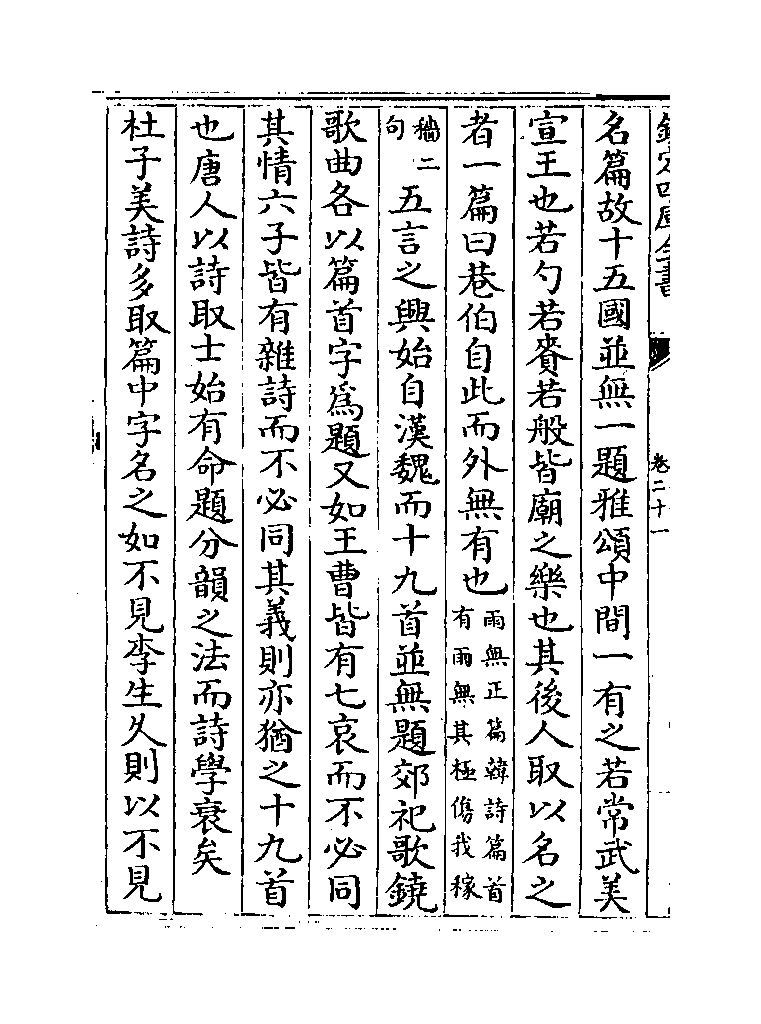 欽定四庫全書
卷二十一
名篇故十五國並無一題雅頌中間一有之若常武美
宣王也若勺若賚若般皆廟之樂也其後人取以名之
者一篇曰巷伯自此而外無有也雨無正篇韓詩篇首有雨無其極傷我稼
穡二句五言之興始自漢魏而十九首並無題郊祀歌鐃
歌曲各以篇首字為題又如王曹皆有七哀而不必同
其情六子皆有雜詩而不必同其義則亦猶之十九首
也唐人以詩取士始有命題分韻之法而詩學衰矣
杜子美詩多取篇中字名之如不見李生久則以不見